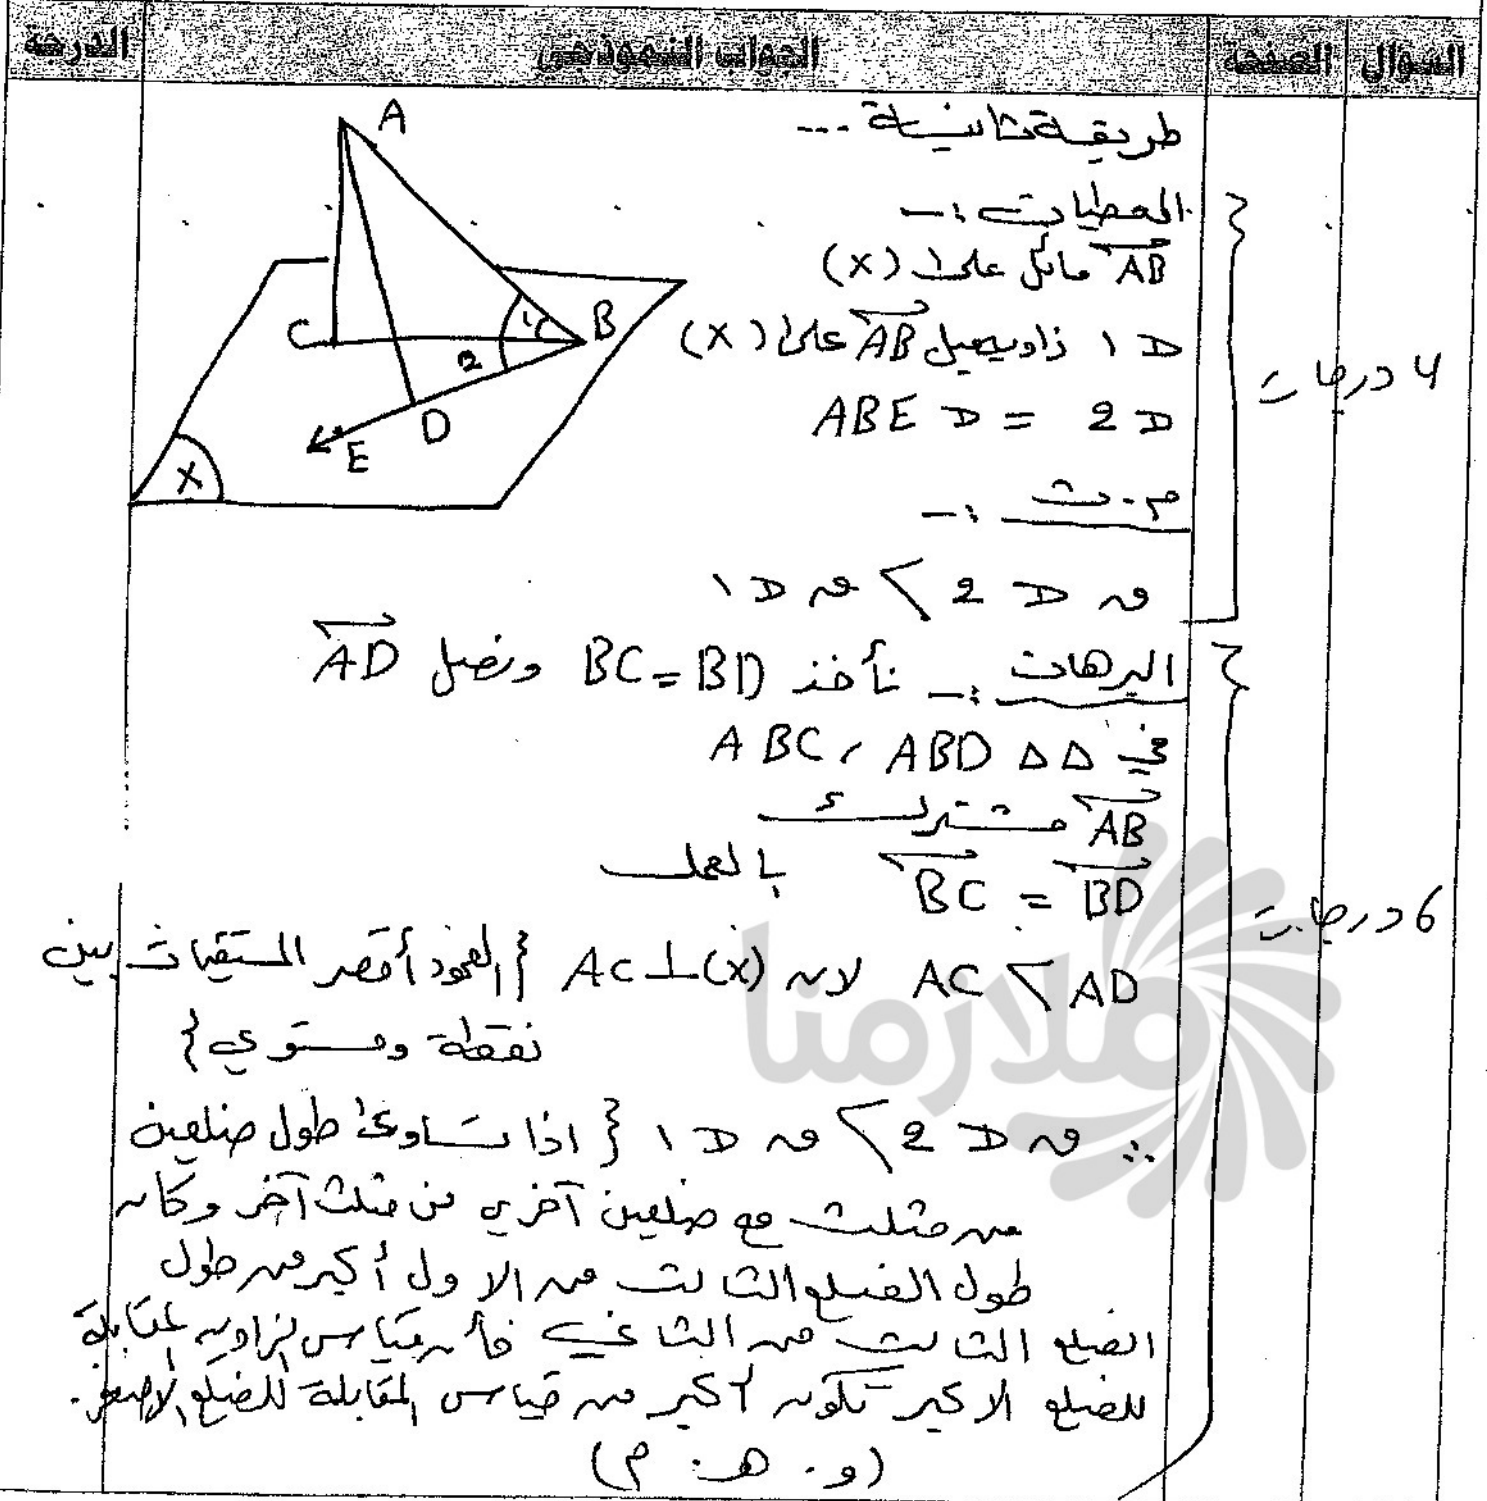 السؤال الصفحة الجواب النموذجي الدرجة
طريقة ثانية ...
المعطيات :-
AB مائل على (X)
1 زاوية ميل AB على (X)
ABE = 2
م . ث :-
4 درجات
ق 2 > ق 1
البرهان :- نأخذ BC = BD ونصل AD
في ABC ، ABD ΔΔ
AB مشترك
BC = BD بالعمل
AC < AD لان AC ⊥ (X) {العمود أقصر المستقيمات بين
نقطة ومستوي}
6 درجات
∴ ق 2 > ق 1 { اذا تساوى طول ضلعين
من مثلث مع ضلعين آخري من مثلث آخر وكان
طول الضلع الثالث من الاول أكبر من طول
الضلع الثالث من الثاني فأن قياس الزاوية المقابلة
للضلع الاكبر تكون اكبر من قياس المقابلة للضلع الاصغر.
(و . هـ . م)
A
C
B
1
2
D
E
X
ملازمنا